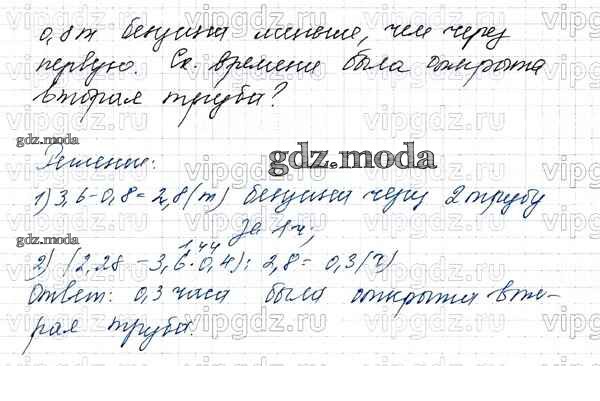 0,8т бензина меньше, чем через
первую. Ск. времени была открыта
вторая труба?
gdz.moda
Решение:
gdz.moda
1) 3,6-0,8=2,8(т) бензина через 2 трубу
за 1 ч;
gdz.moda
1,44
2) (2,28 - 3,6·0,4): 2,8= 0,3(ч)
Ответ: 0,3 часа была открыта вто-
рая труба.